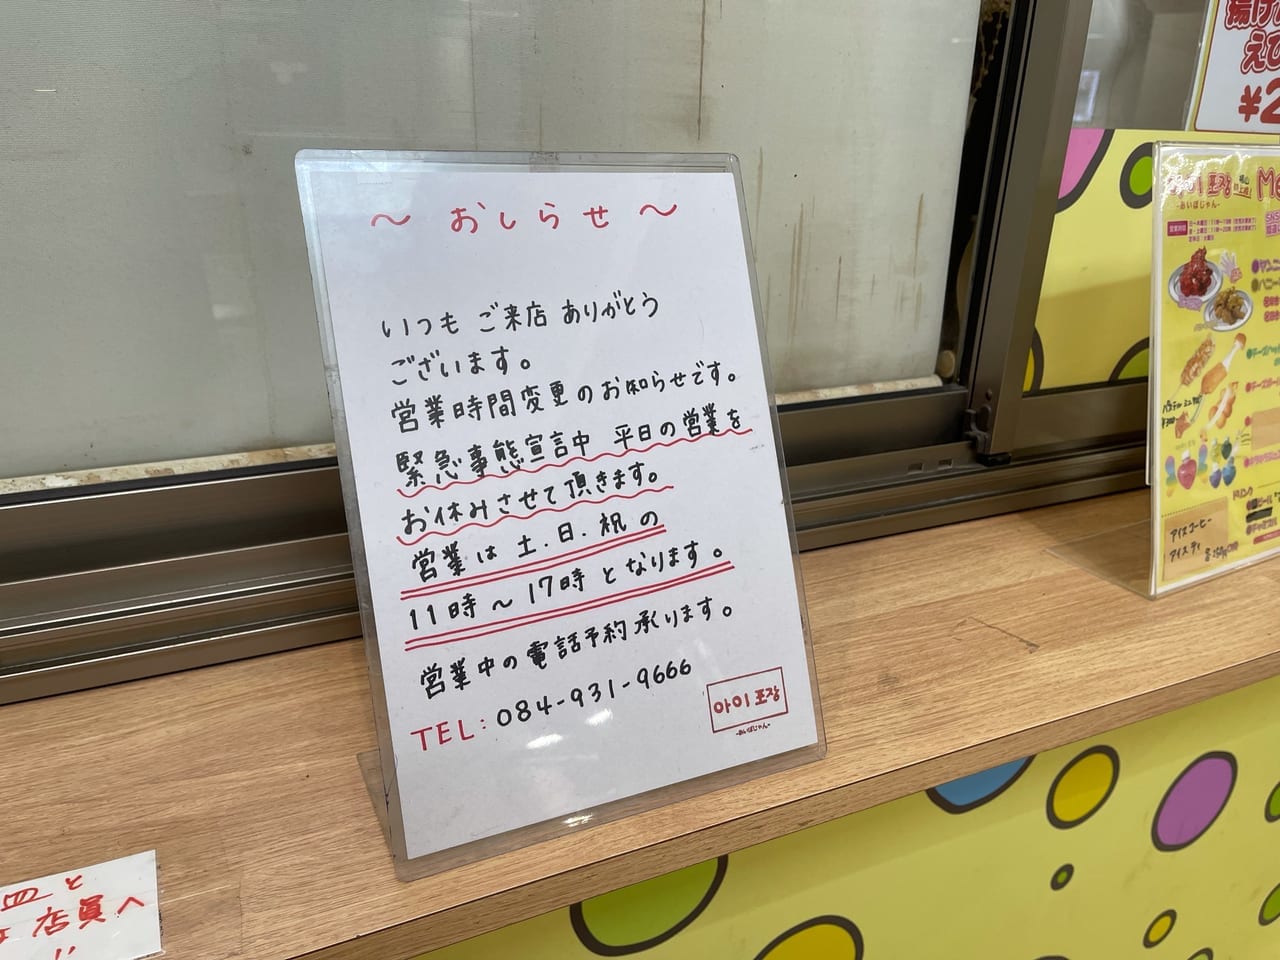 ～ おしらせ ～
いつも ご来店 ありがとう
ございます。
営業時間変更のお知らせです。
緊急事態宣言中 平日の営業を
お休みさせて頂きます。
営業は 土.日.祝 の
11時～17時 となります。
営業中の電話予約承ります。
TEL: 084-931-9666
아이포장
-あいぽじゃん-
皿と
店員へ
揚げ
えび
¥2
아이포장
-あいぽじゃん-
Me
営業時間
定休日:火曜日
ドリンク
アイスコーヒー
アイスティ